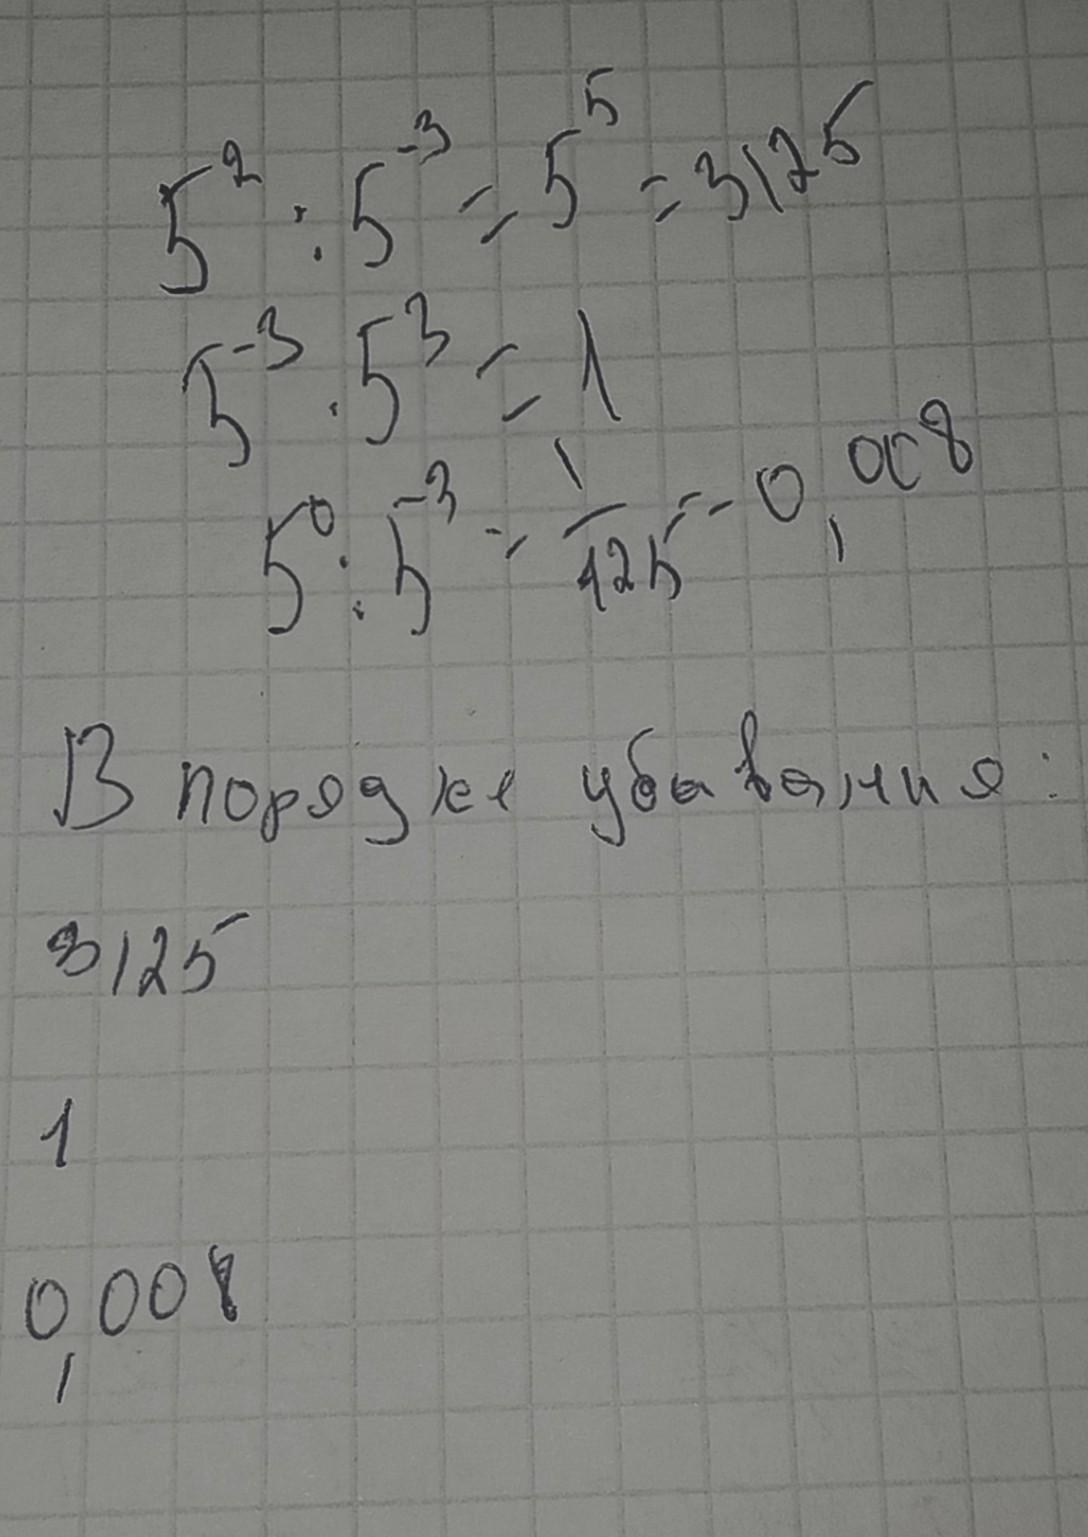 5² : 5⁻³ = 5⁵ = 3125
5⁻³ · 5³ = 1
5⁰ : 5⁻³ = 1/125 = 0,008
В порядке убавания:
3125
1
0,008